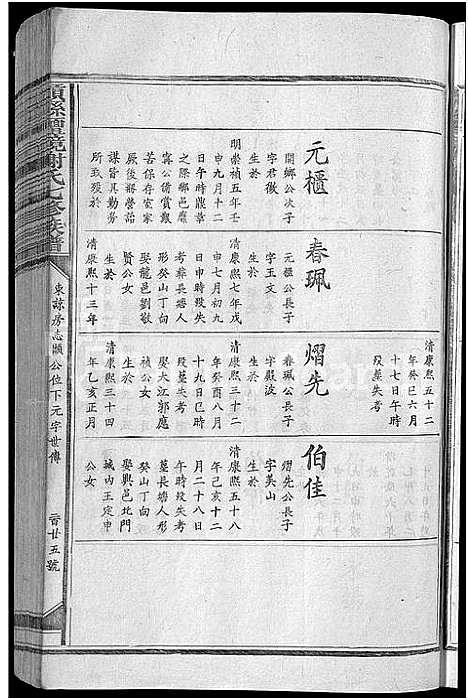 元櫃
開鄉公次子
字君徽
生於
明崇禎五年壬
申九月十二
日午時鼎革
之際鄉邑靡
寧公備嘗艱
苦保存室家
厥後經營詒
謀皆其勤勞
所致歿於
清康熙五十二
年癸巳六月
十七日午時
歿塟失考
春珮
元櫃公長子
字玉文
生於
清康熙七年戊
申七月初九
日申時歿失
考塟長塘人
形癸山丁向
娶龍邑劉敬
賢公女
生於
清康熙十三年
熠先
春珮公長子
字嚴波
生於
清康熙三十二
年癸酉八月
十九日巳時
歿塟失考
娶大江郭應
禎公女
生於
清康熙三十四
年乙亥正月
伯佳
熠先公長子
字美山
生於
清康熙五十八
年己亥十二
月二十八日
午時歿失考
塟長塘人形
癸山丁向
娶興邑北門
城內王定申
公女
東諒房志顯公位下元字世傳
晉廿五號